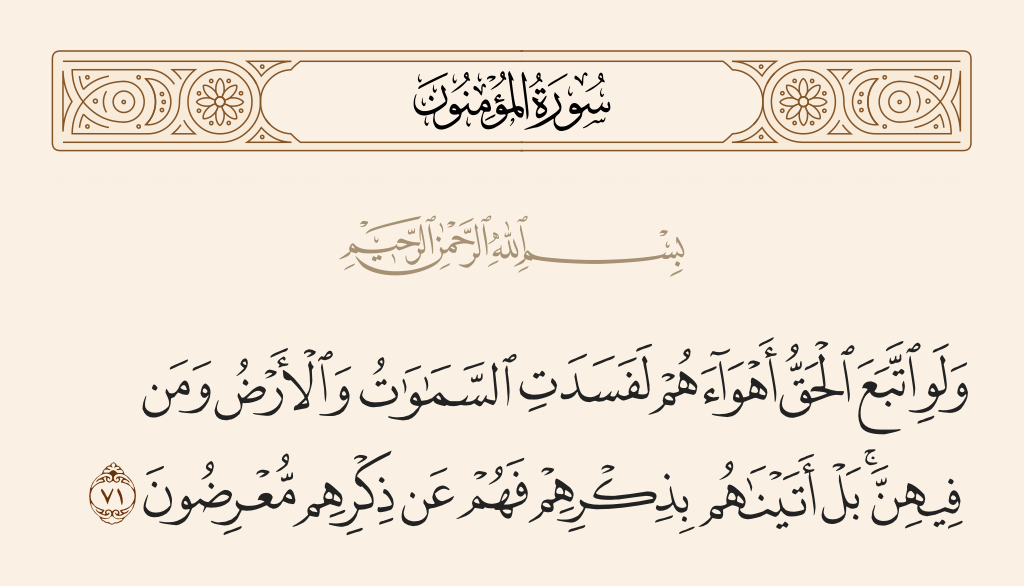 سُورَةُ المُؤْمِنُونَ
بِسْمِ ٱللَّهِ ٱلرَّحْمَٰنِ ٱلرَّحِيمِ
وَلَوِ ٱتَّبَعَ ٱلْحَقُّ أَهْوَآءَهُمْ لَفَسَدَتِ ٱلسَّمَٰوَٰتُ وَٱلْأَرْضُ وَمَن
فِيهِنَّ ۚ بَلْ أَتَيْنَٰهُم بِذِكْرِهِمْ فَهُمْ عَن ذِكْرِهِم مُّعْرِضُونَ ٧١